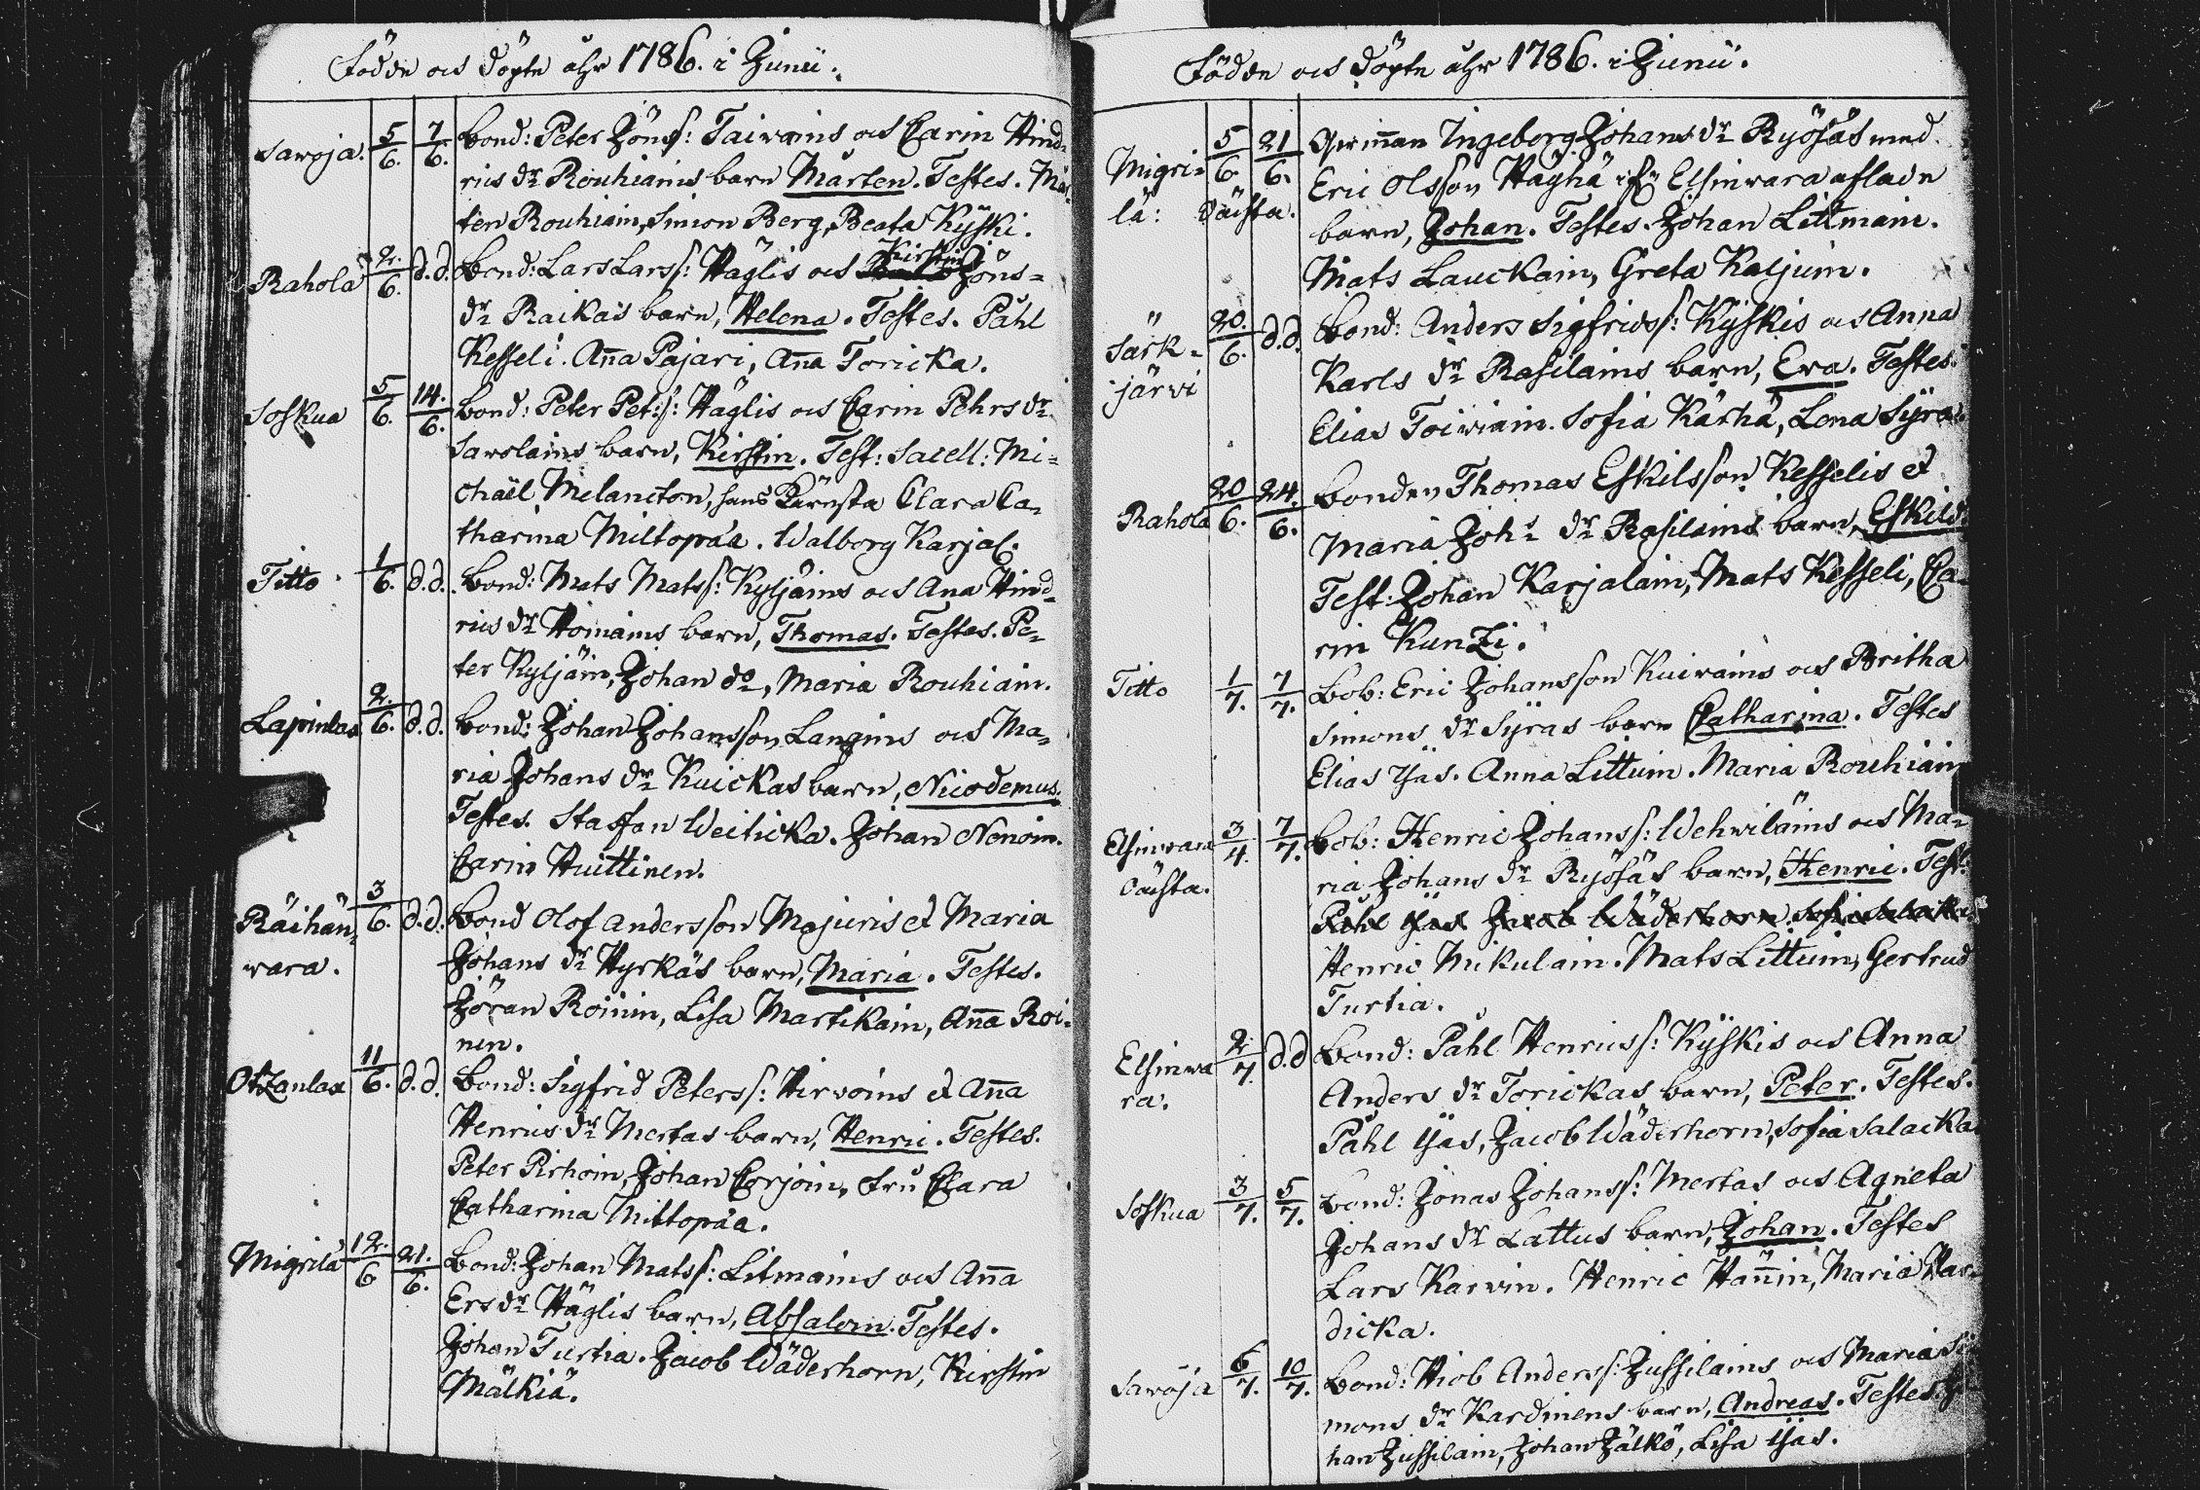 Födde och Döpte åhr 1786. i Junii.
Sawoja. 5/6. 7/6. Bond: Peter Jönss: Taiwains och Carin Hind-
rics dr Rouhiains barn Mårten. Testes. Mår-
ten Rouhiain, Simon Berg, Beata Kyski.
Rahola 2/6. d.d. Bond: Lars Larss: Häglis och Kirstin Jöns-
dr Raikas barn, Helena. Testes. Påhl
Kesseli. Aña Pajari, Aña Toricka.
Soskua 5/6. 14/6. Bond: Peter Pet:s: Häglis och Carin Pehrs dr
Sawolains barn, Kirstin. Test: Sacell: Mi-
chaël Melancton, hans Kärnsta Clara Ca-
tharina Miltopæa. Walborg Karjal.
Titto. 1/6. d.d. Bond: Mats Matss: Kyljäins och Ana Hind-
rics dr Hoinains barn, Thomas. Testes. Pe-
ter Kyljäin, Johan do, Maria Rouhiain.
Lapinlax 2/6. d.d. Bond: Johan Johansson Langins och Ma-
ria Johans dr Kuickas barn, Nicodemus.
Testes. Staffan Weiticka. Johan Nenoin.
Carin Huittinen.
Räihän- 3/6. d.d. Bond Olof Andersson Majuris et Maria
wara. Johans dr Hyrkäs barn, Maria. Testes.
Jöran Roinin, Lisa Martikain, Aña Roi-
nen.
Otzanlax 11/6. d.d. Bond: Sigfrid Peterss: Hirwoins et Aña
Henrics dr Mertas barn, Henric. Testes.
Peter Pirhoin, Johan Corjoin, Fru Clara
Catharina Miltopæa.
Migrilä 12/6 21/6. Bond: Johan Matss: Litmains och Aña
Ers dr Häglis barn, Absalom. Testes.
Johan Turtia. Jacob Wäderhorn, Kirstin
Mälkiä.
Födde och Döpte åhr 1786. i Junii.
Migri- 5/6. 21/6. Qwiñan Ingeborg Johans dr Ryösäs med
lä: Oäcta. Eric Olsson Häghä ifr Elsinwara aflade
barn, Johan. Testes. Johan Littmain.
Mats Lauckain, Greta Kaljuin.
Särk- 20/6. d.d. Bond: Anders Sigfridss: Kyskis och Anna
järvi Karls dr Rasilains barn, Eva. Testes.
Elias Toiwiain. Sofia Kärhä, Lena Syra.
Rahola 20/6. 24/6. Bonden Thomas Eskilsson Kesselis et
Maria Johs dr Rasilains barn, Eskild.
Test: Johan Karjalain, Mats Kesseli, Ca-
rin Kunzi.
Titto 1/7. 7/7. Bob: Eric Johansson Kuiwains och Britha
Simons dr Syras barn Catharina. Testes
Elias Yas. Anna Littuin. Maria Rouhiain
Elsinwara 3/4. 7/7. Bob: Henric Johanss: Wehwiläins och Ma-
Oäcta. ria Johans dr Ryösäs barn, Henric. Test:
Påhl Yäs Jacob Wäderhorn Sofia Salacka
Henric Mikulain. Mats Littuin, Gertrud
Turtia.
Elsinwa 2/7. d.d Bond: Påhl Henricss: Kyskis och Anna
ra. Anders dr Torickas barn, Peter. Testes.
Påhl Yäs, Jacob Wäderhorn, Sofia Salacka
Soskua 3/7. 5/7. Bond: Jonas Johanss: Mertas och Agneta
Johans dr Lattus barn, Johan. Testes
Lars Karvin. Henric Hañin, Maria War-
dicka.
Sawoja 6/7. 10/7. Bond: Hiob Anderss: Jussilains och Maria Si
mons dr Kardinens barn, Andreas. Testes. Jo
han Jussilain, Johan Jälkö, Lisa Yäs.